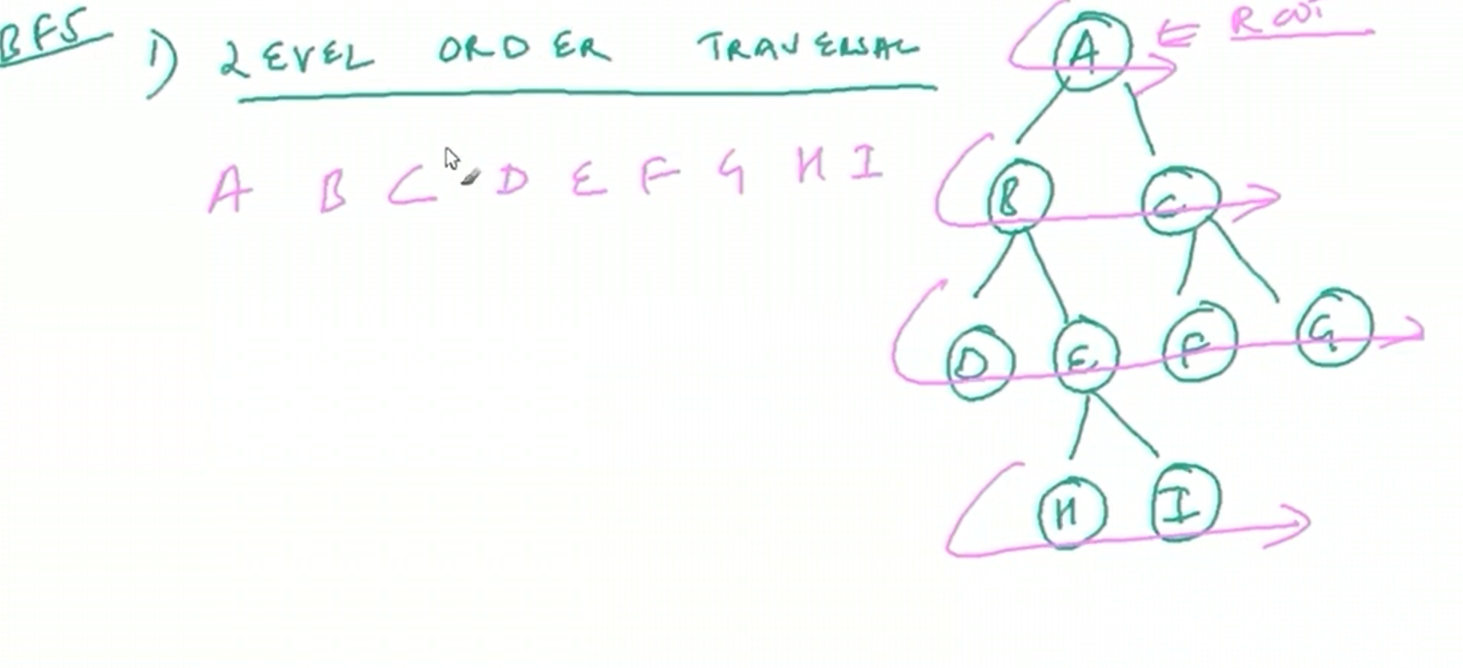 BFS
1) LEVEL ORDER TRAVERSAL
A B C D E F G H I
A Root
B C
D E F G
H I